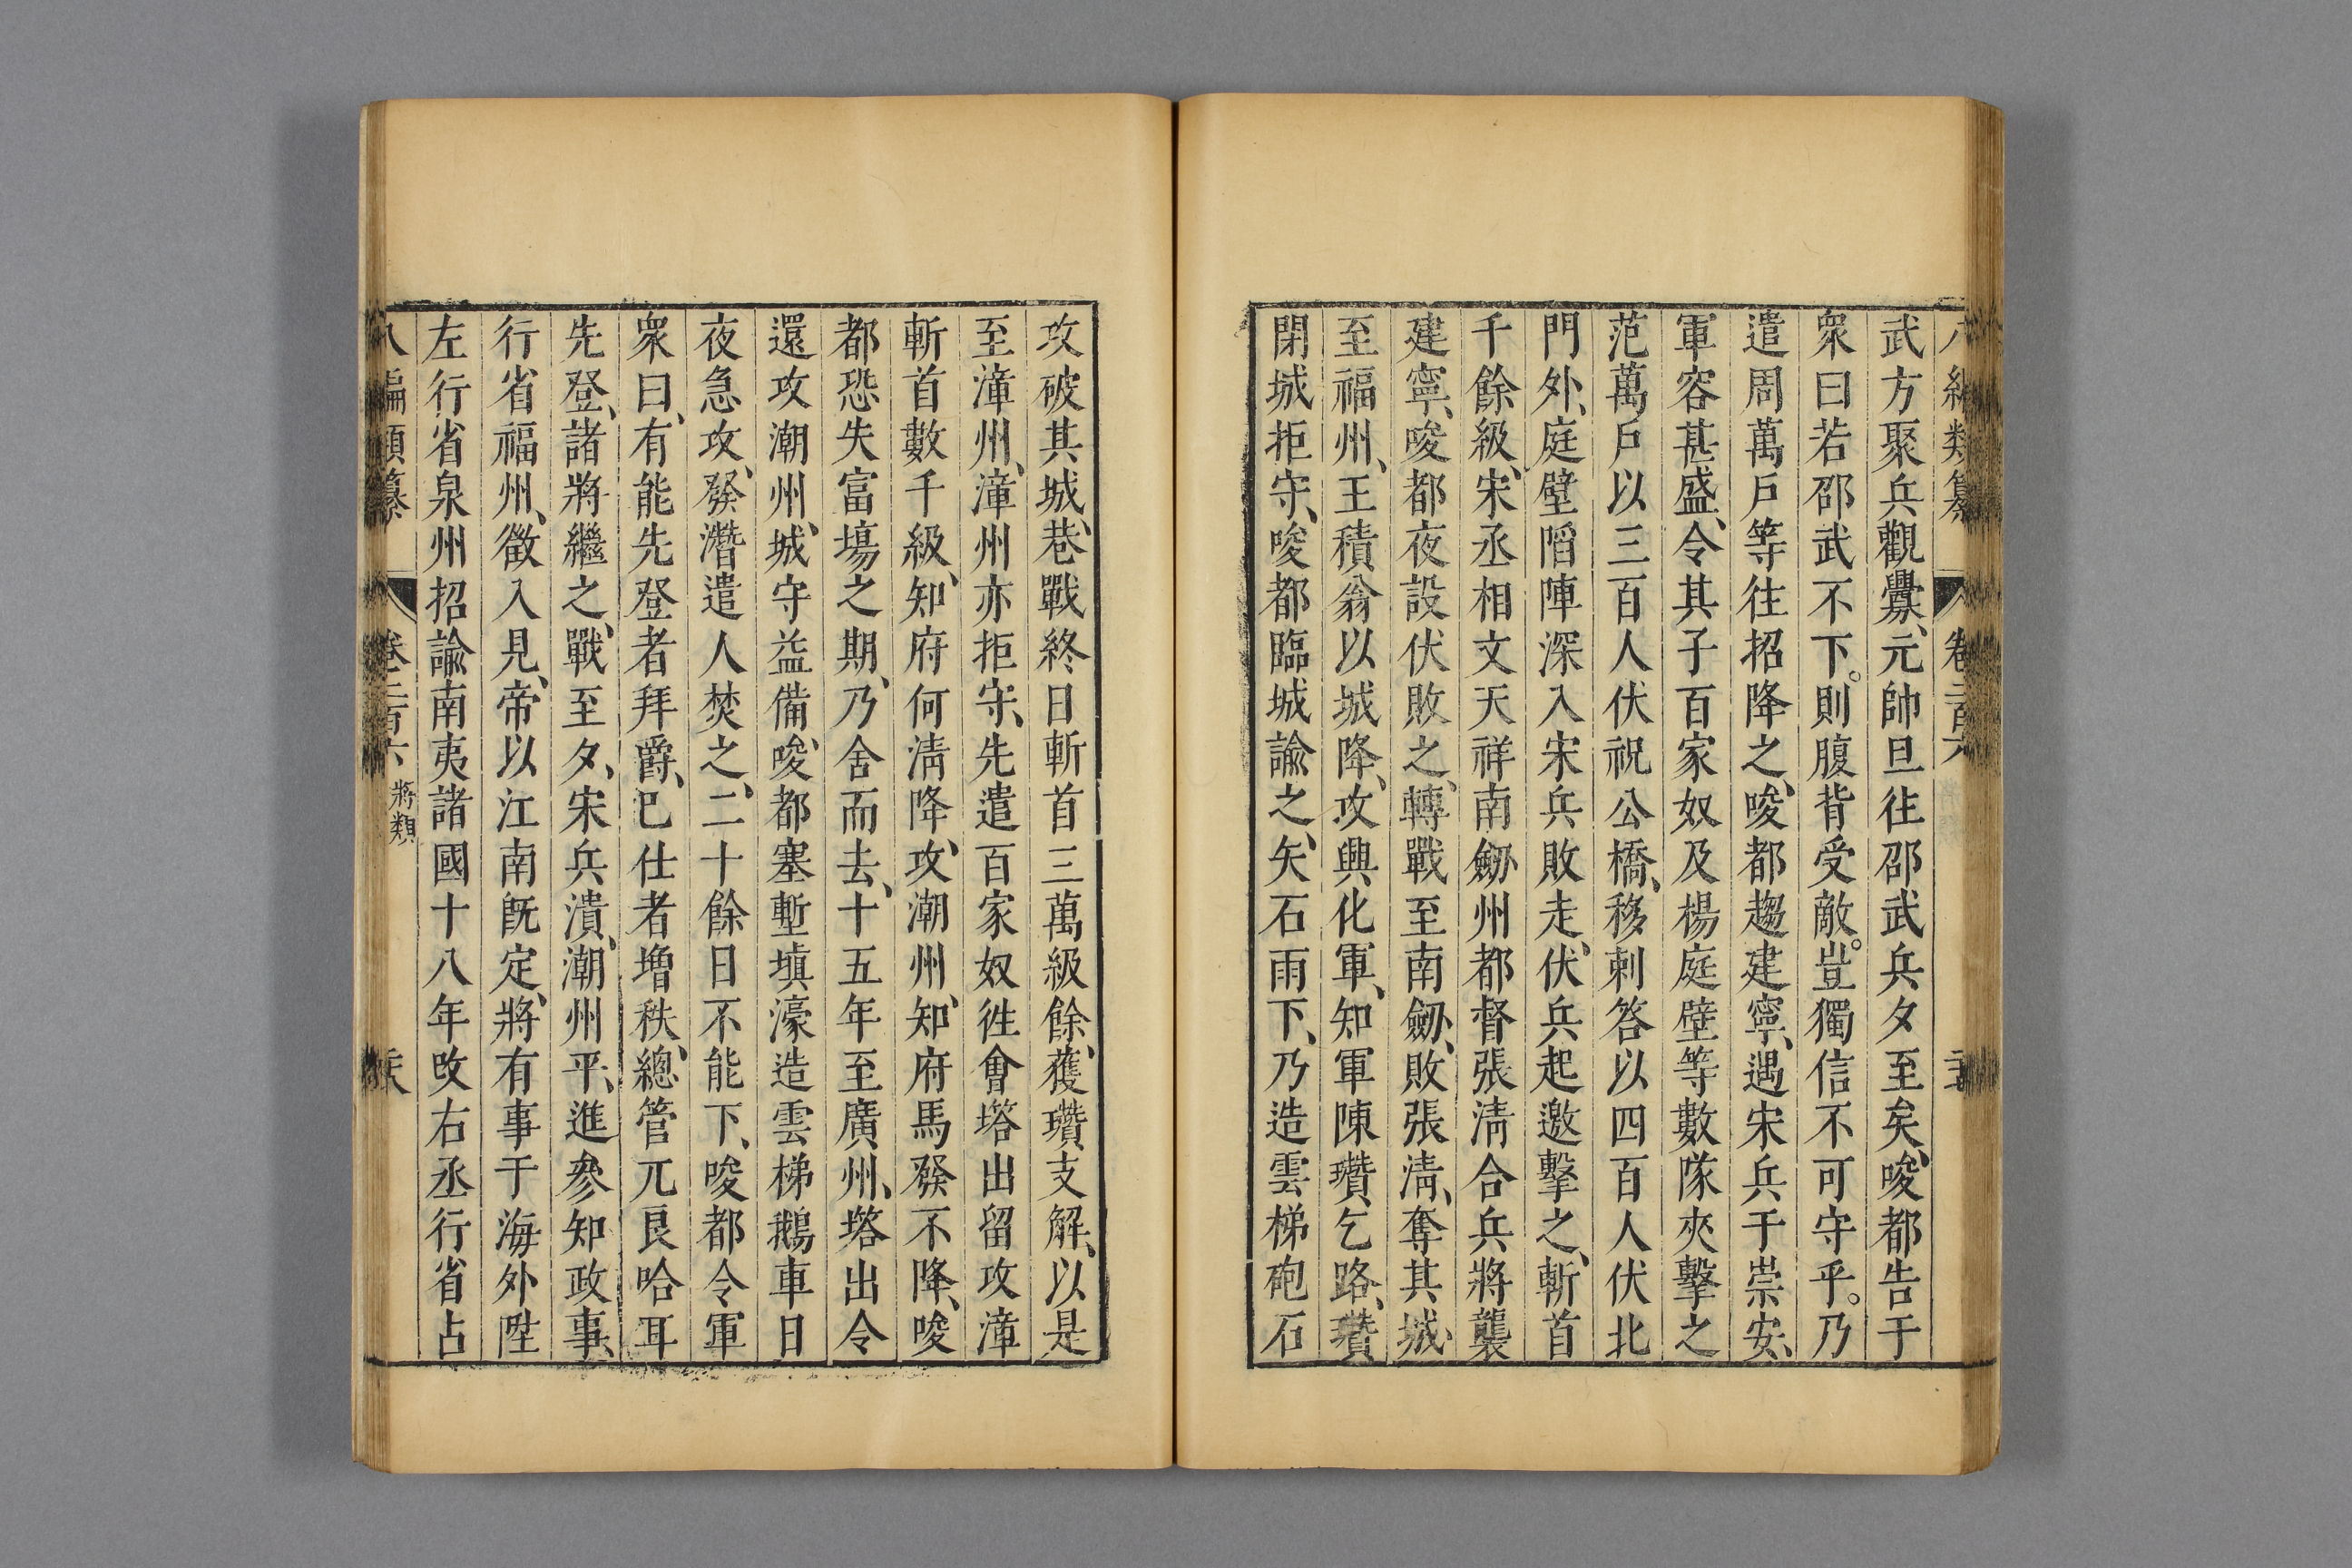 八編類纂 卷二百六
武方聚兵觀釁、元帥旦往邵武兵夕至矣、唆都告于
衆曰若邵武不下。則腹背受敵。豈獨信不可守乎。乃
遣周萬戶等往招降之、唆都趨建寧、遇宋兵于崇安、
軍容甚盛、令其子百家奴及楊庭璧等數隊夾擊之
范萬戶以三百人伏祝公橋、移剌答以四百人伏北
門外、庭壁䧟陣深入宋兵敗走、伏兵起邀擊之、斬首
千餘級、宋丞相文天祥南劒州都督張淸合兵將襲
建寧、唆都夜設伏敗之、轉戰至南劒、敗張淸、奪其城、
至福州、王積翁以城降、攻興化軍、知軍陳瓚乞路、瓚
閉城拒守、唆都臨城諭之、矢石雨下、乃造雲梯砲石
攻破其城、巷戰終日斬首三萬級餘、獲瓚支解、以是
至漳州、漳州亦拒守、先遣百家奴徃會塔出留攻漳
斬首數千級、知府何淸降、攻潮州、知府馬發不降、唆
都恐失富塲之期、乃舍而去、十五年至廣州、塔出令
還攻潮州、城守益備、唆都塞塹塡濠造雲梯鵝車日
夜急攻、發潛遣人焚之、二十餘日不能下、唆都令軍
衆曰、有能先登者拜爵、已仕者增秩、總管兀良哈耳
先登、諸將繼之、戰至夕、宋兵潰、潮州平、進參知政事、
行省福州、徵入見、帝以江南旣定、將有事于海外陞
左行省泉州招諭南夷諸國十八年攺右丞行省占
八編類纂 卷二百六 將類 二十六